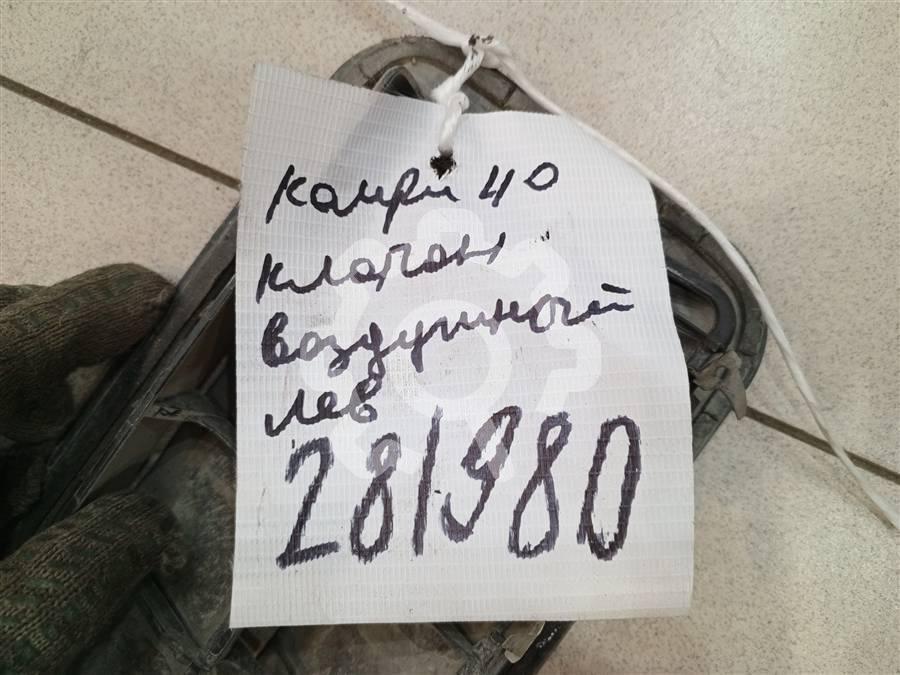 Камри 40
клапан
воздушный
лев
281980